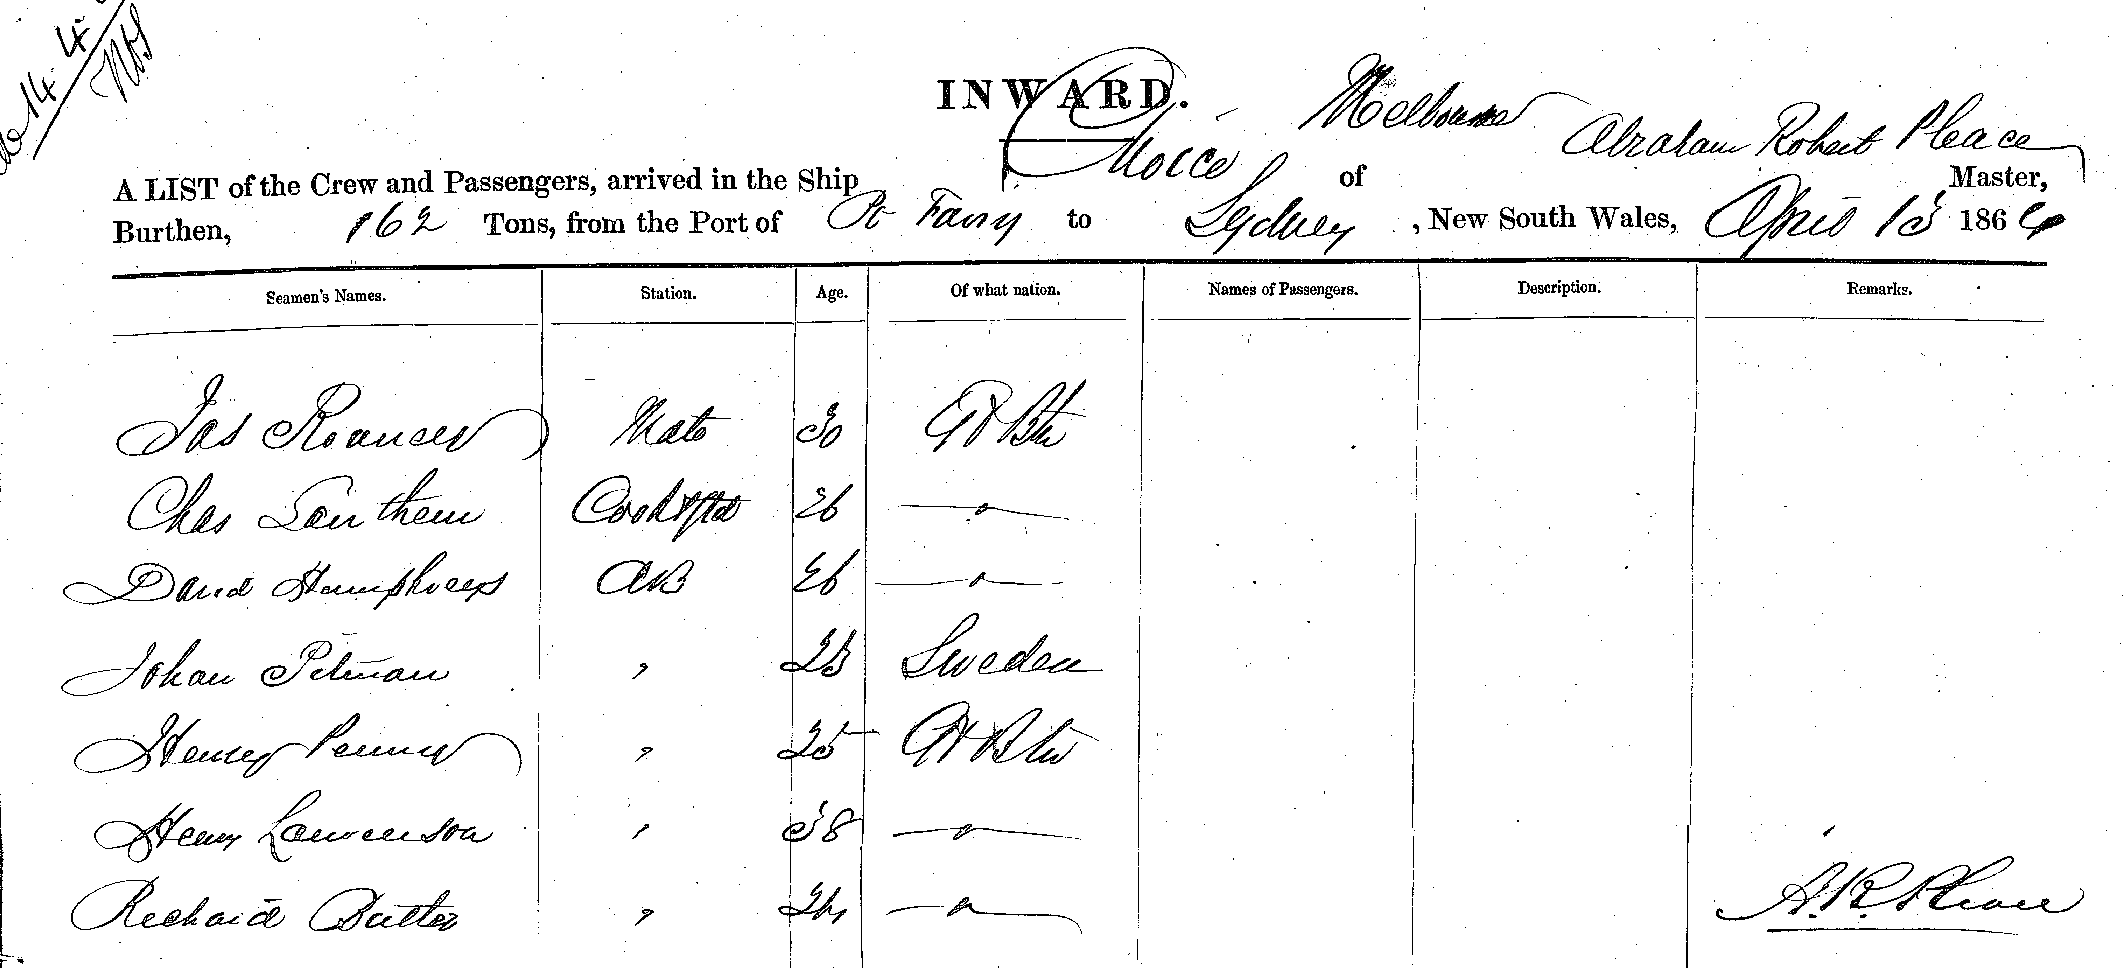 14.4
INWARD.
Melbourne Abraham Robert Pleace
A LIST of the Crew and Passengers, arrived in the Ship of Master,
Burthen, 162 Tons, from the Port of Pt Fairy to Sydney , New South Wales, April 13 1864
Seamen's Names. Station. Age. Of what nation. Names of Passengers. Description. Remarks.
Jas Mate 30 Gt Btn
Chas Southern Cook & Std 26 — " —
David Humphreys AB 26 — " —
Johan Petman " 23 Sweden
Henry Penny " 25 Gt Btn
Henry Lawrenson " 38 — " —
Richard Butler " — " —
A. R. Pleace